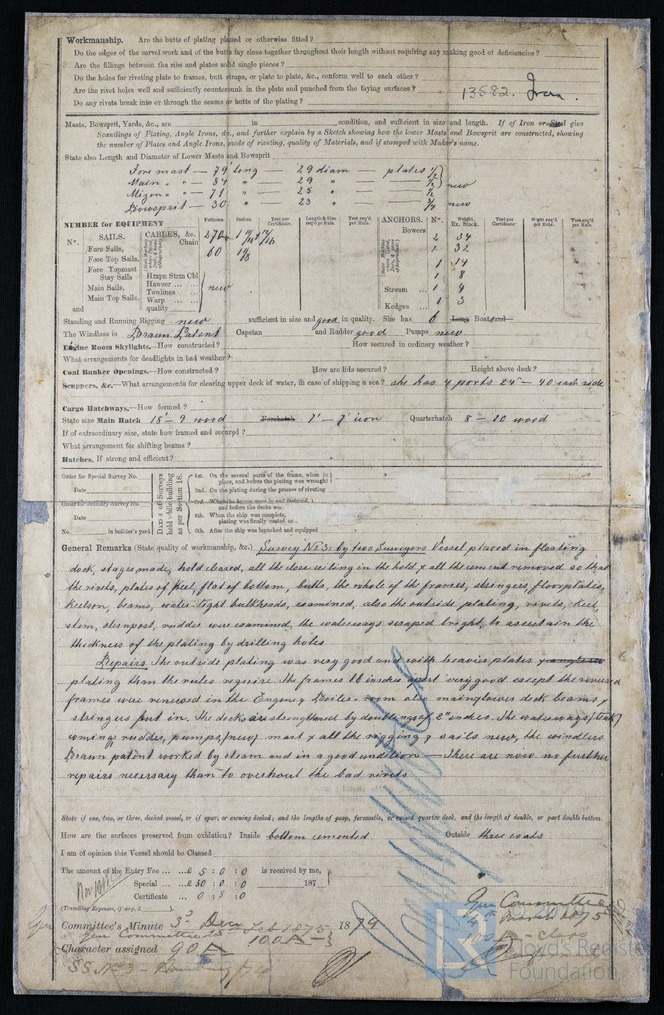 Workmanship. Are the butts of plating planed or otherwise fitted?
Do the edges of the carvel work and of the butts fay close together throughout their length without requiring any making good of deficiencies?
Are the fillings between the ribs and plates solid single pieces?
Do the holes for riveting plate to frames, butt straps, or plate to plate, &c., conform well to each other?
Are the rivet holes well and sufficiently countersunk in the plate and punched from the faying surfaces?
Do any rivets break into or through the seams or butts of the plating?
13582. Iron.
Masts, Bowsprit, Yards, &c., are in condition, and sufficient in size and length. If of Iron or Steel give
Scantlings of Plating, Angle Irons, &c., and further explain by a Sketch showing how the lower Masts and Bowsprit are constructed, showing
the number of Plates and Angle Irons, mode of riveting, quality of Materials, and if stamped with Maker's name.
State also Length and Diameter of Lower Masts and Bowsprit
Fore mast — 79' long — 29 diam — plates
Main " " — 84 " — 29 " —
Mizen " " — 71 " — 25 " — new
Bowsprit — 30 " 23 " new
NUMBER for EQUIPMENT
Fathoms. Inches. Test per Certificate. Length & Size req'd per Rule. Test req'd per Rule.
ANCHORS. Nº. Weight. Ex. Stock. Test per Certificate. Wght req'd per Rule. Test req'd per Rule.
Nº. SAILS. CABLES, &c.
Chain 270
Fore Sails, 60
Fore Top Sails,
Fore Topmast
Stay Sails
Main Sails,
Main Top Sails,
and
Hmpn Strm Cbl
Hawser
Towlines
Warp
quality
new
Bowers 2 34
1 32
1 14
1 8
Stream 1 4
Kedges 1 3
Standing and Running Rigging new sufficient in size and good in quality. She has 6 Long Boats and
The Windlass is Brown Patent Capstan and Rudder good Pumps new
Engine Room Skylights.—How constructed? How secured in ordinary weather?
What arrangements for deadlights in bad weather?
Coal Bunker Openings.—How constructed? How are lids secured? Height above deck?
Scuppers, &c.—What arrangements for clearing upper deck of water, in case of shipping a sea? she has 4 ports 24" – 40 each side
Cargo Hatchways.—How formed?
State size Main Hatch 18' – 9 wood Forehatch 7' – 7' iron Quarterhatch 8 – 20 wood
If of extraordinary size, state how framed and secured?
What arrangement for shifting beams?
Hatches, If strong and efficient?
Order for Special Survey No.
Date
Order for Ordinary Survey No.
Date
No. in builder's yard.
DATES of Surveys held while building as per Section 18.
1st. On the several parts of the frame, when in place, and before the plating was wrought
2nd. On the plating during the process of riveting
and before the decks were
4th. When the ship was complete,
plating was finally coated or
5th. After the ship was launched and equipped
General Remarks (State quality of workmanship, &c.) Survey Nº 3: by two Surveyors Vessel placed in floating
dock, stages made, hold cleared, all the close ceiling in the hold, & all the cement removed, so that
the rivets, plates of keel, flat of bottom, butts, the whole of the frames, stringers, floorplates,
keelson, beams, water-tight bulkheads, examined, also the outside plating, rivets, keel,
stem, sternpost, rudder was examined, the waterways scraped bright, to ascertain the
thickness of the plating by drilling holes
Repairs. The outside plating was very good and with heavier plates
plating than the rules require. The frames 18 inches apart very good except the reversed
frames were renewed in the Engine & Boiler-room also main & lower deck beams &
stringers put in. The deck are strengthened by doubling of 2" inches. The waterways,
comings rudder, pumps, (new) mast & all the rigging & sails new, the windlass
Brown patent worked by steam and in a good condition — There are now no further
repairs necessary than to overhaul the bad rivets
State if one, two, or three, decked vessel, or if spar, or awning decked; and the lengths of poop, forecastle, or raised quarter deck, and the length of double, or part double bottom.
How are the surfaces preserved from oxidation? Inside bottom cemented Outside three coats
I am of opinion this Vessel should be Classed
The amount of the Entry Fee £ 5 : 0 : 0 is received by me,
Special £ 30 : 0 : 0 187
Certificate 0 : 5 : 0
(Travelling Expenses, if any, £ )
Committee's Minute 3rd Decr 1874
Gen Committee Feb 1875
100A
Character assigned 90 A
SS No 3 – Hamburg 74
Gen Committee
March 1875
Lloyd's Register
Foundation